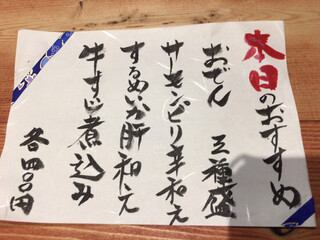 本日のおすすめ
おでん 三種盛
サーモンピリ辛和え
するめいか肝和え
牛すじ煮込み
各四〇〇円